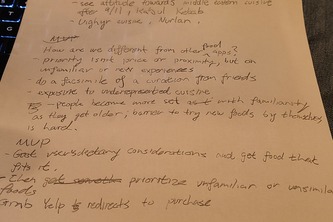 - see attitude towards middle eastern cuisine
after 9/11,
- Uighyr cuisine, Nurlan.
MVP
How are we different from other food apps?
- priority isn't price or proximity, but on
unfamiliar or new experiences
- do a facsimile of a curation from friends
- exposure to underrepresented cuisine
- people become more set with familiarity
as they get older; barrier to try new foods by themselves
is hard.
MVP
- Get users dietary considerations and get food that
fits it.
- then prioritize unfamiliar or
foods
Grub Yelp redirects to purchase